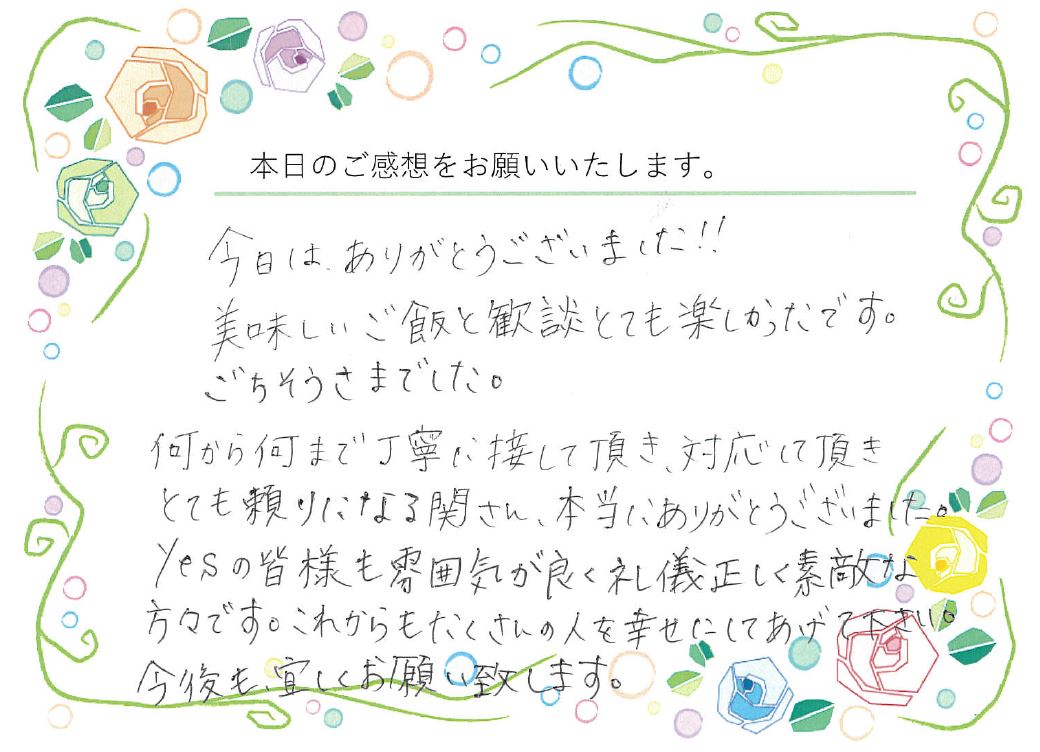 本日のご感想をお願いいたします。
今日は、ありがとうございました!!
美味しいご飯と歓談とても楽しかったです。
ごちそうさまでした。
何から何まで丁寧に接して頂き、対応して頂き
とても頼りになる関さん、本当にありがとうございました。
Yesの皆様も雰囲気が良く礼儀正しく素敵な
方々です。これからもたくさんの人を幸せにしてあげて下さい。
今後も、宜しくお願い致します。